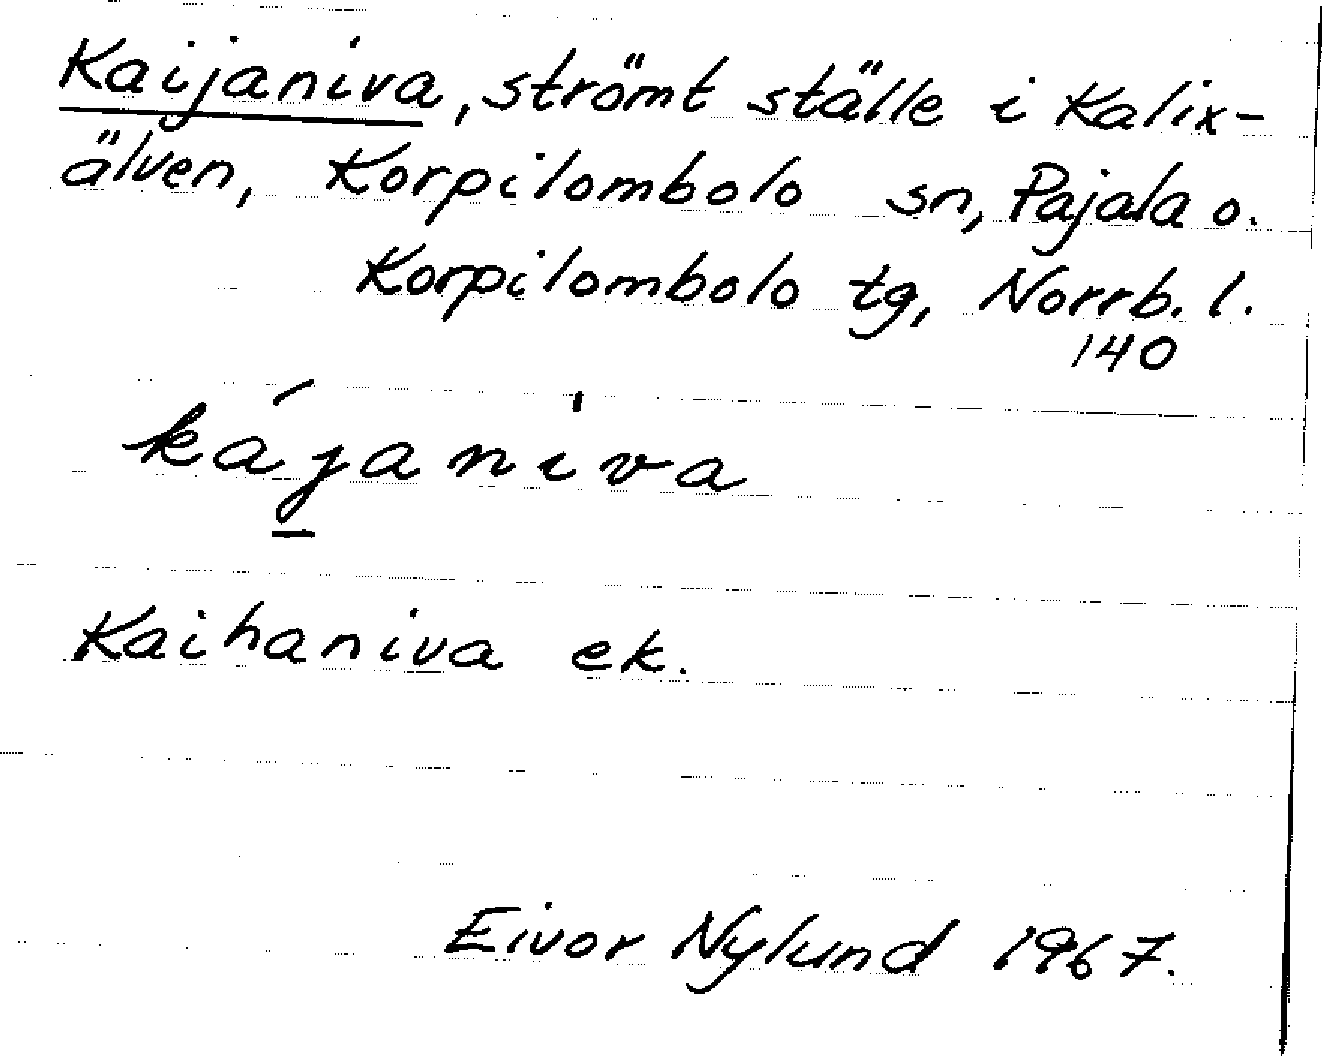 Kaijaniva, strömt ställe i Kalix-
älven, Korpilombolo sn, Pajala o.
Korpilombolo tg, Norrb. l.
140
kájaniva
Kaihaniva ek.
Eivor Nylund 1967.